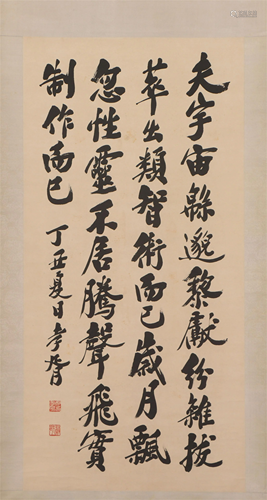 夫宇宙緜邈黎獻紛雜拔
萃出類智術而已歲月飄
忽性靈不居騰聲飛實
制作而已
丁丑夏日孝胥